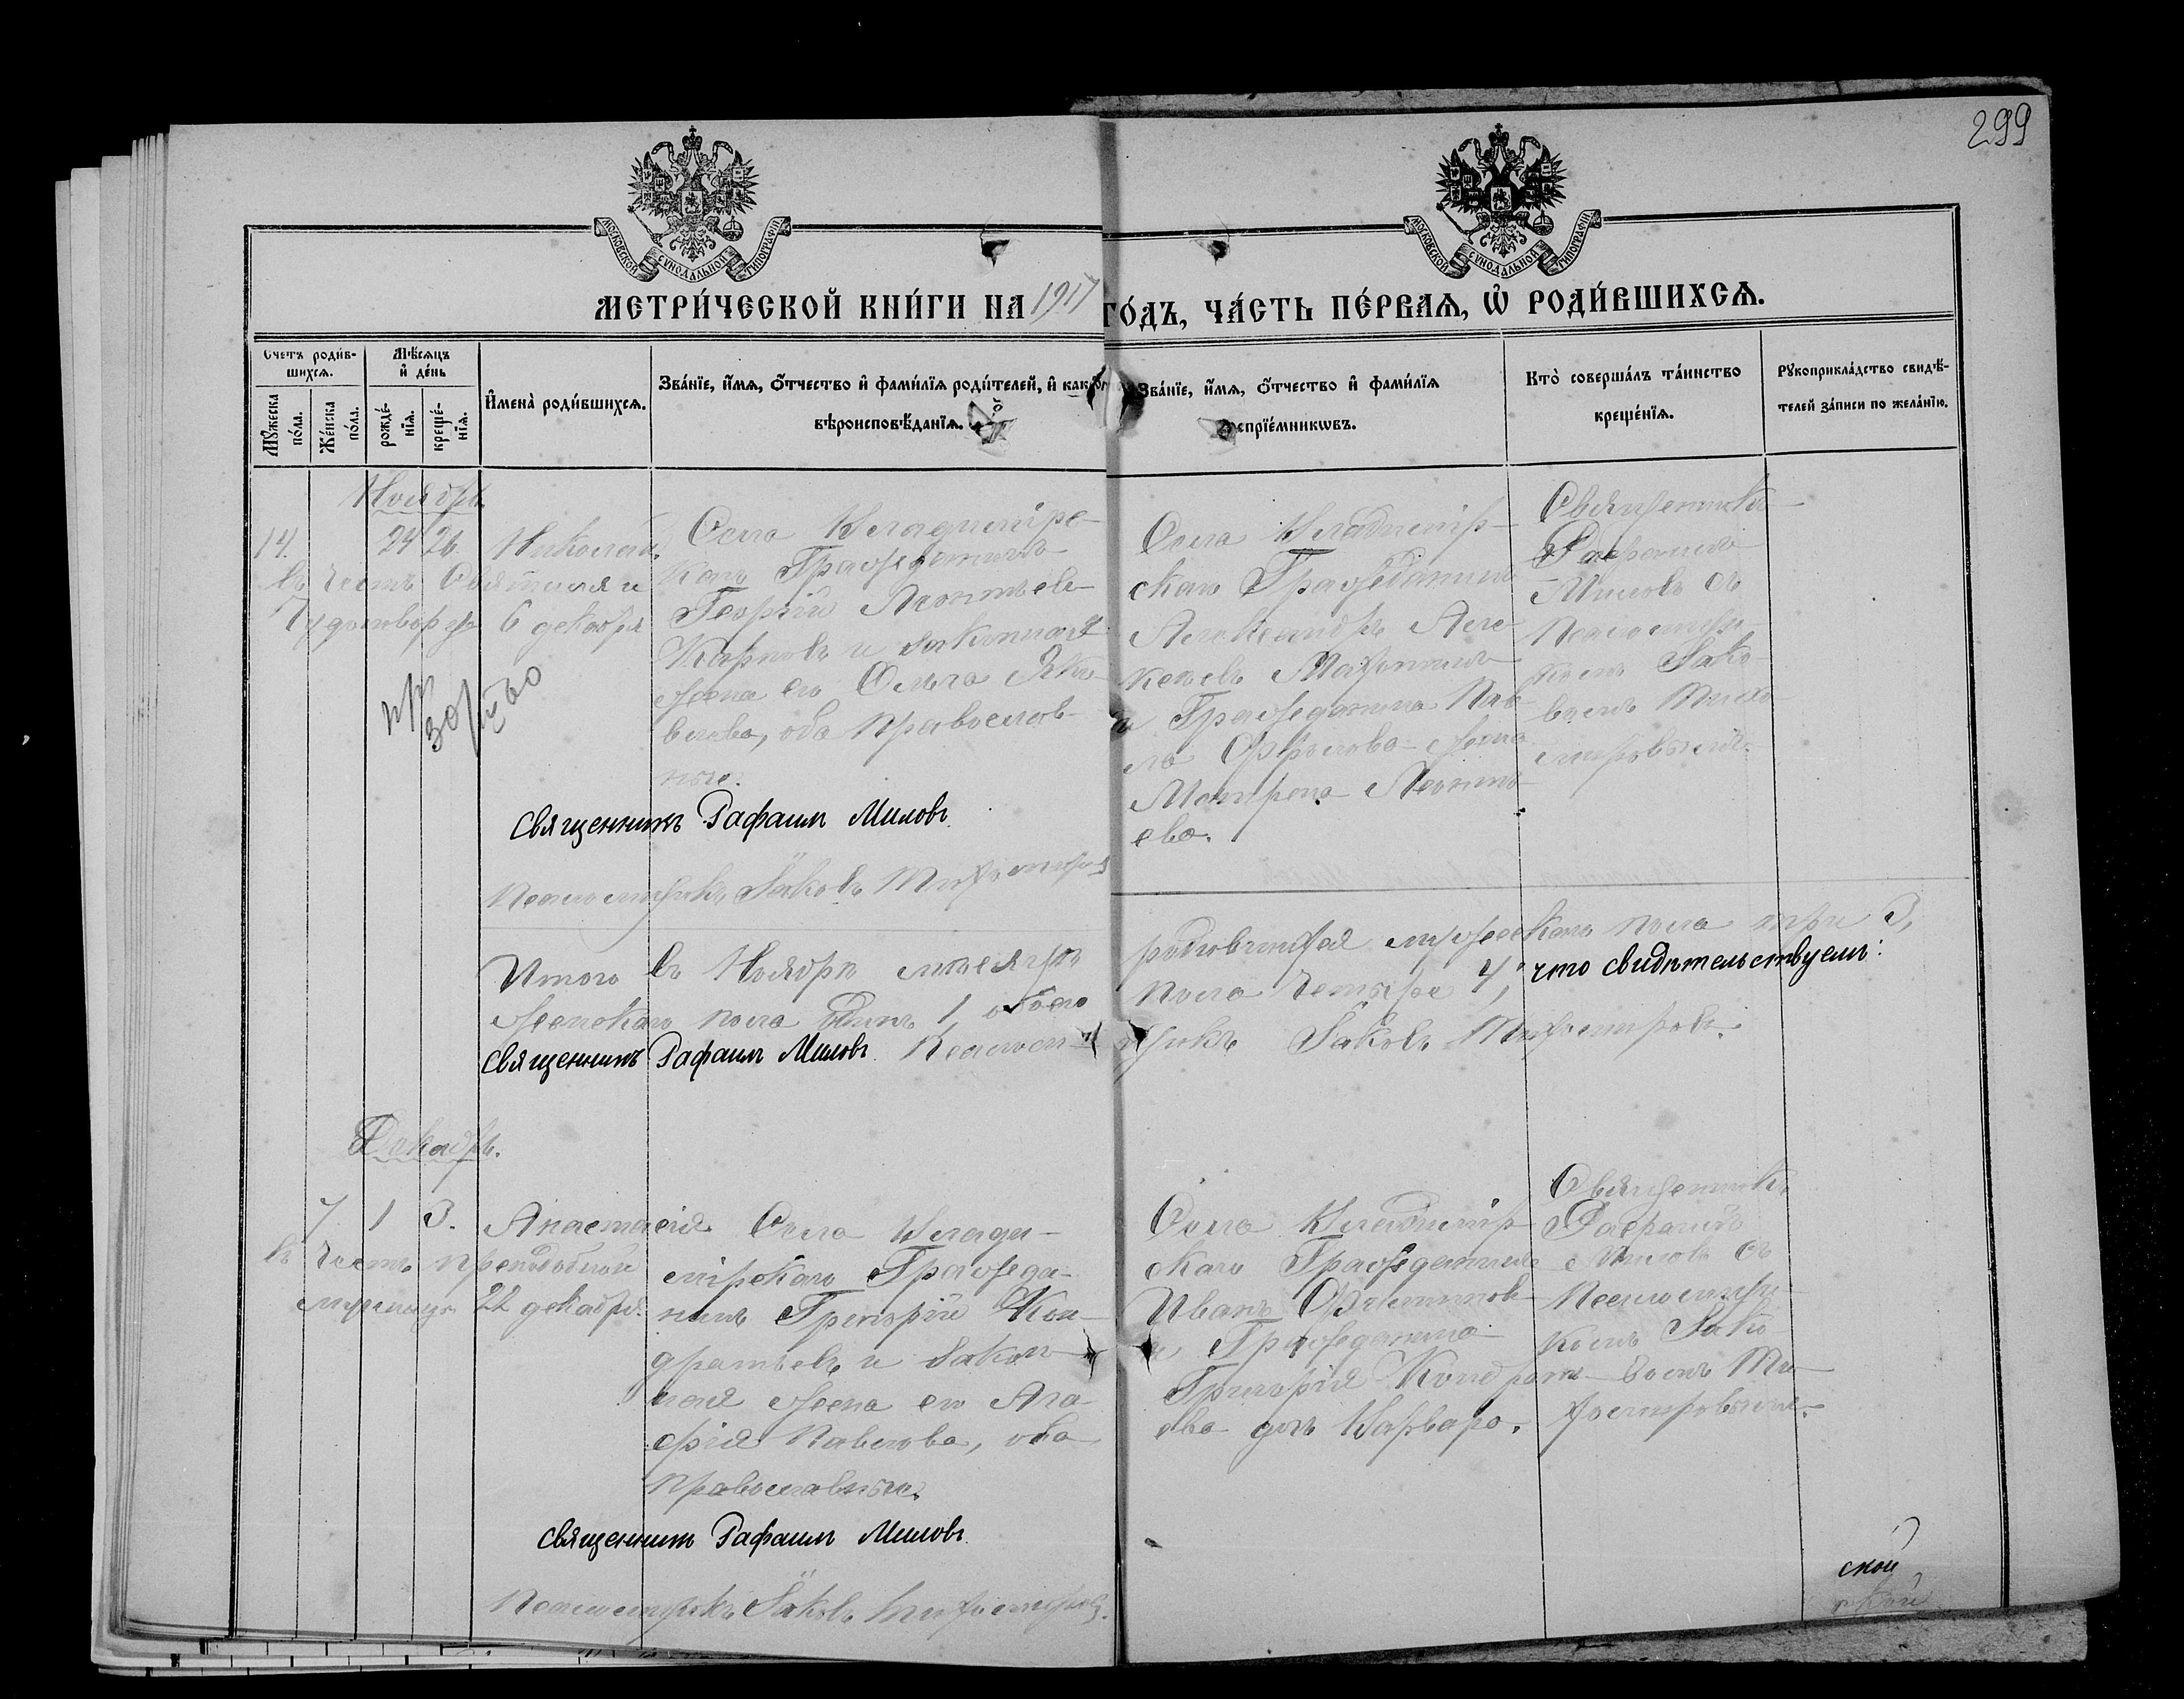 299
МОСКОВСКОЙ СѴНОДАЛЬНОЙ ТИПОГРАФІИ
МОСКОВСКОЙ СѴНОДАЛЬНОЙ ТИПОГРАФІИ
МЕТРИ́ЧЕСКОЙ КНИ́ГИ НА 1917 ГО́ДЪ, ЧА́СТЬ ПЕ́РВАЯ, Ѡ҆ РОДИ́ВШИХСЯ.
Счетъ роди́в-
шихся.
Мѣ́сяцъ
и҆ де́нь
И҆мена̀ роди́вшихся.
Зва́нїе, и҆́мя, ѻ҆́тчество и҆ фами́лїя роди́телей, и҆ како́гѡ
вѣроисповѣ́данїя.
Зва́нїе, и҆́мя, ѻ҆́тчество и҆ фами́лїя
воспрїе́мникѡвъ.
Кто̀ соверша́лъ та́инство
креще́нїя.
Рꙋкоприкла́дство свидѣ́-
телей за́писи по жела́нїю.
Мꙋ́жеска
по́ла.
Же́нска
по́ла.
рожде́-
нїя.
креще́-
нїя.
Ноябрь
14. 24 26. Николай.
въ честь Святителя и
Чудотворца 6 декабря
Села Владимірс-
каго Гражданинъ
Георгій Леонтьевъ
Карповъ и законная
жена его Ольга Яко-
влева, оба православ-
ные.
Села Владимір-
скаго Гражданинъ
Александръ Але-
ксеевъ
и Гражданина Пав-
ла Фролова жена
Матрона Леонть-
ева.
Священникъ
Рафаилъ
Миловъ съ
Псаломщи-
комъ Яко-
вомъ Тихо-
мировымъ.
Священникъ Рафаилъ Миловъ.
Псаломщикъ Іаковъ Тихомировъ
Итого въ Ноябрѣ мѣсяцѣ родившихся мужескаго пола три 3,
женскаго пола одинъ 1, обоего пола четыре 4, что свидѣтельствуемъ:
Священникъ Рафаилъ Миловъ. Псаломщикъ Іаковъ Тихомировъ.
Декабрь.
7 1 3. Анастасія
въ честь преподобной
мученицы 22 декабря.
Села Влади-
мірскаго Гражда-
нинъ Григорій Кон-
дратьевъ и закон-
ная жена его Ага-
фія Павлова, оба
православные.
Села Владимір-
скаго Гражданинъ
Иванъ Филипповъ
и Гражданина
Григорія Кондрать-
ева дочь Варвара.
Священникъ
Рафаилъ
Миловъ съ
Псаломщи-
комъ Яко-
вомъ Ти-
хомировымъ.
Священникъ Рафаилъ Миловъ.
Псаломщикъ Іаковъ Тихомировъ.
ской